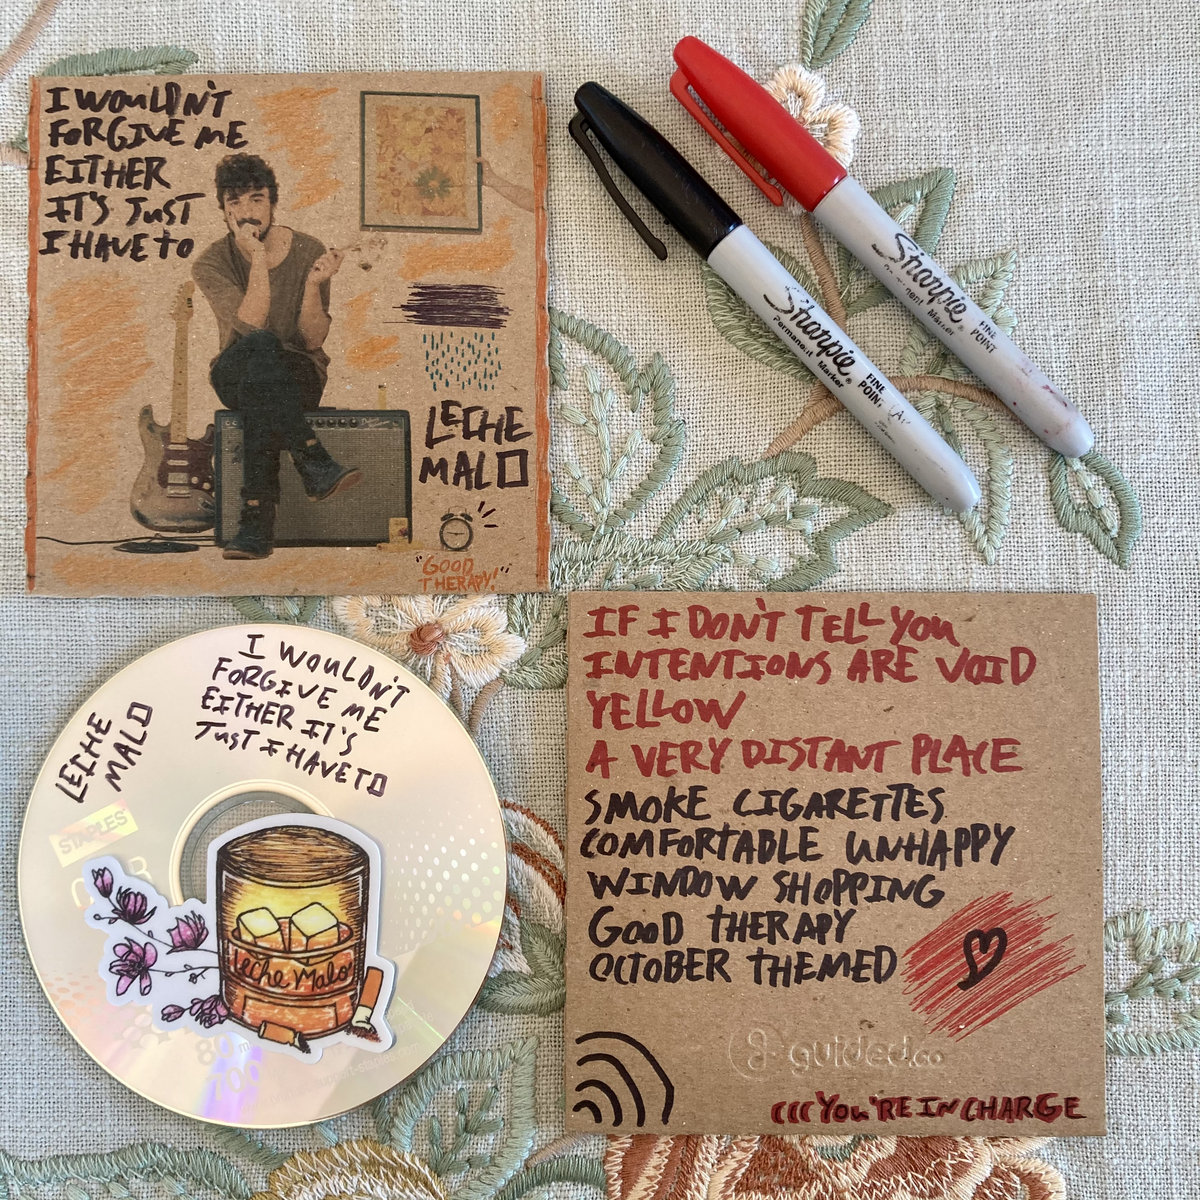 I WOULDN'T
FORGIVE ME
EITHER
IT'S JUST
I HAVE TO
LECHE
MALO
"GOOD
THERAPY!"
Sharpie
Permanent Marker
FINE
POINT
Sharpie
Marker
FINE
POINT
I WOULDN'T
FORGIVE ME
EITHER IT'S
JUST I HAVE TO
LECHE
MALO
STAPLES
Leche Malo
IF I DON'T TELL YOU
INTENTIONS ARE VOID
YELLOW
A VERY DISTANT PLACE
SMOKE CIGARETTES
COMFORTABLE UNHAPPY
WINDOW SHOPPING
GOOD THERAPY
OCTOBER THEMED
guided.co
(((YOU'RE IN CHARGE